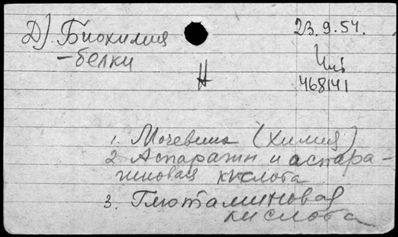 Д) Биохимия
- белки
23.9.54.
Инв
468141
Н
1. Мочевина (химия)
2. Аспарагин и аспара-
гиновая кислота
3. Глютаминовая
кислота